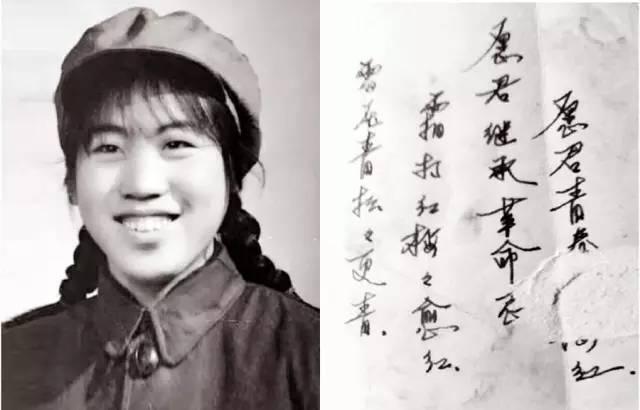 愿君青春心红.
愿君继承革命志
霜打红梅々愈红.
雪压青松々更青.